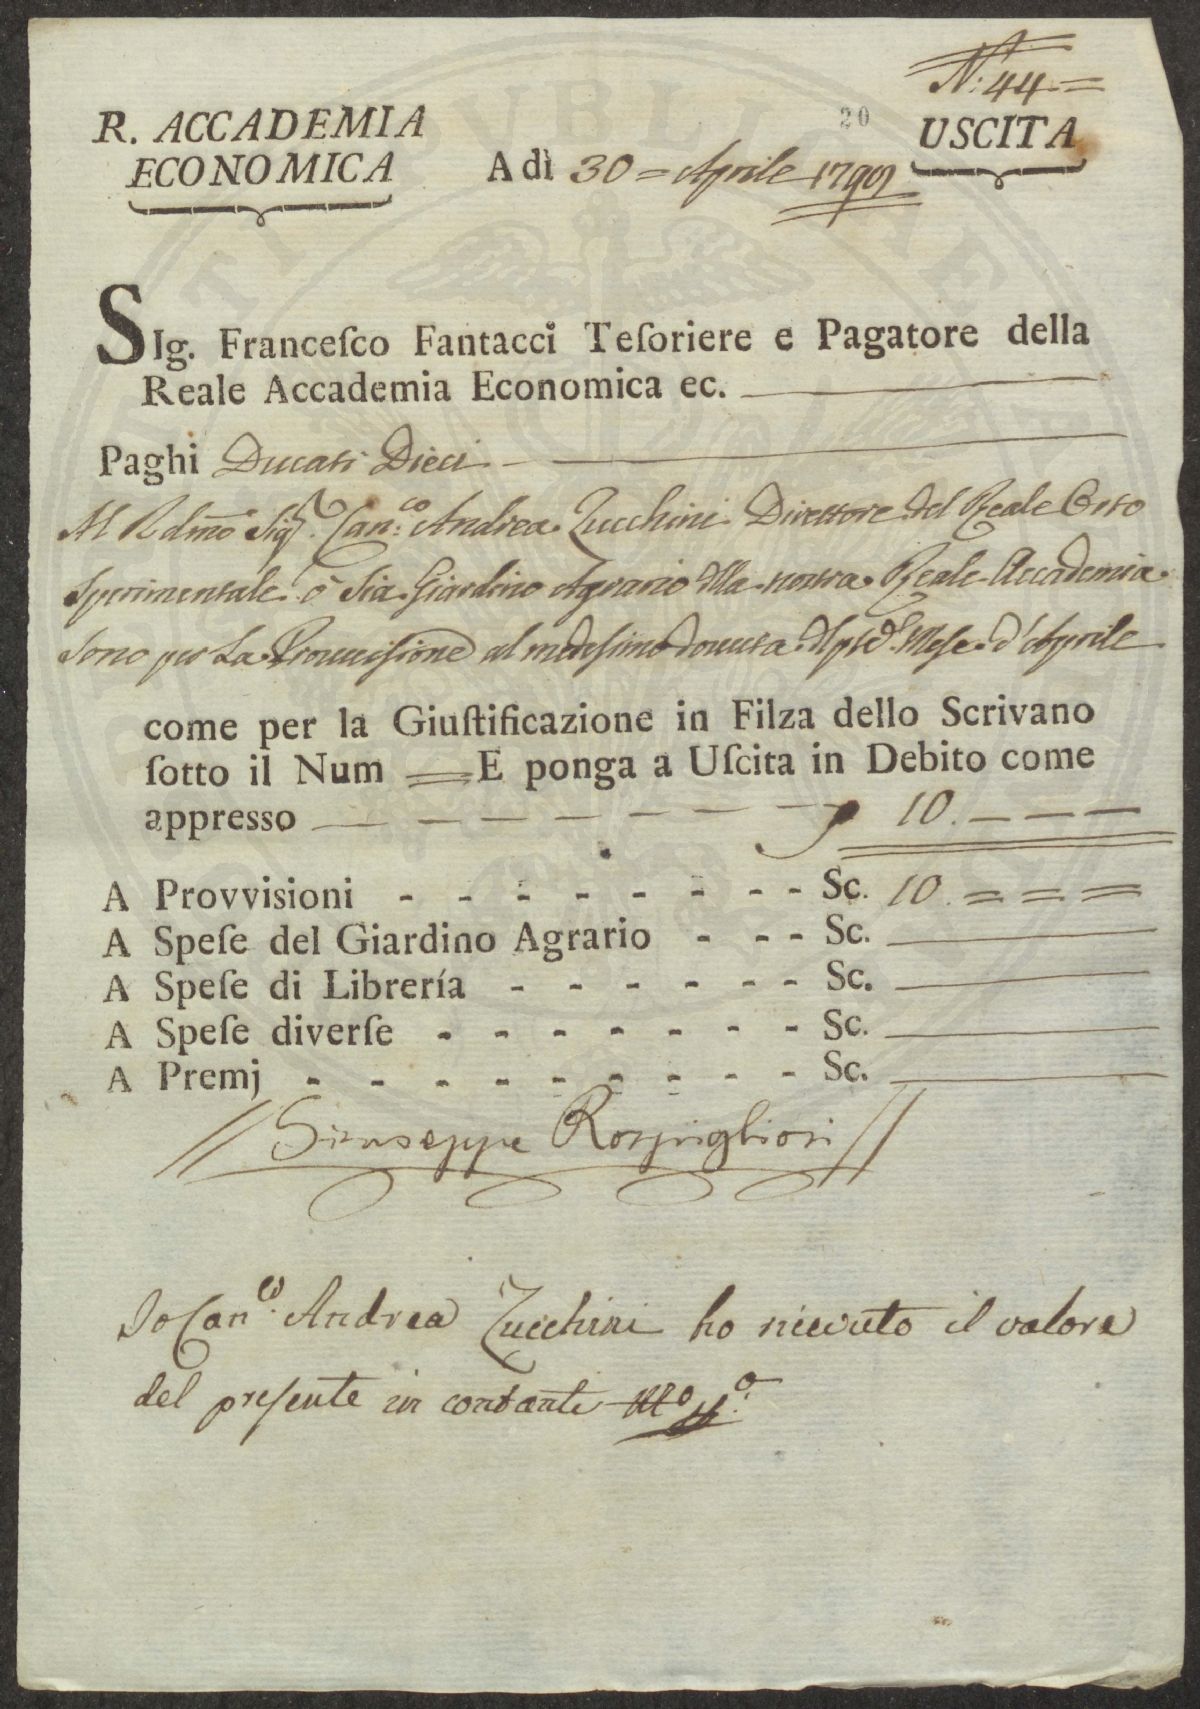 N.º 44
R. ACCADEMIA
ECONOMICA
20
USCITA
A dì 30 = Aprile 1792
SIg. Franceſco Fantacci Teſoriere e Pagatore della
Reale Accademia Economica ec.
Paghi Ducati Dieci
Al Rdmo Sigr. Can.co Andrea Zucchini Direttore del Reale Orto
Sperimentale o Sia Giardino Agrario della nostra Reale Accademia
Sono per La Provvisione al medesimo dovuta Mese d'Aprile
come per la Giuſtificazione in Filza dello Scrivano
ſotto il Num = E ponga a Uſcita in Debito come
appresso - - - - - - - 10. - - -
A Provvisioni - - - - - - - - Sc. 10. = = =
A Speſe del Giardino Agrario - - - Sc.
A Speſe di Librería - - - - - - Sc.
A Speſe diverſe - - - - - - - Sc.
A Premj - - - - - - - - - Sc.
Giuseppe Rospigliosi
Io Can.co Andrea Zucchini ho ricevuto il valore
del preſente in contante